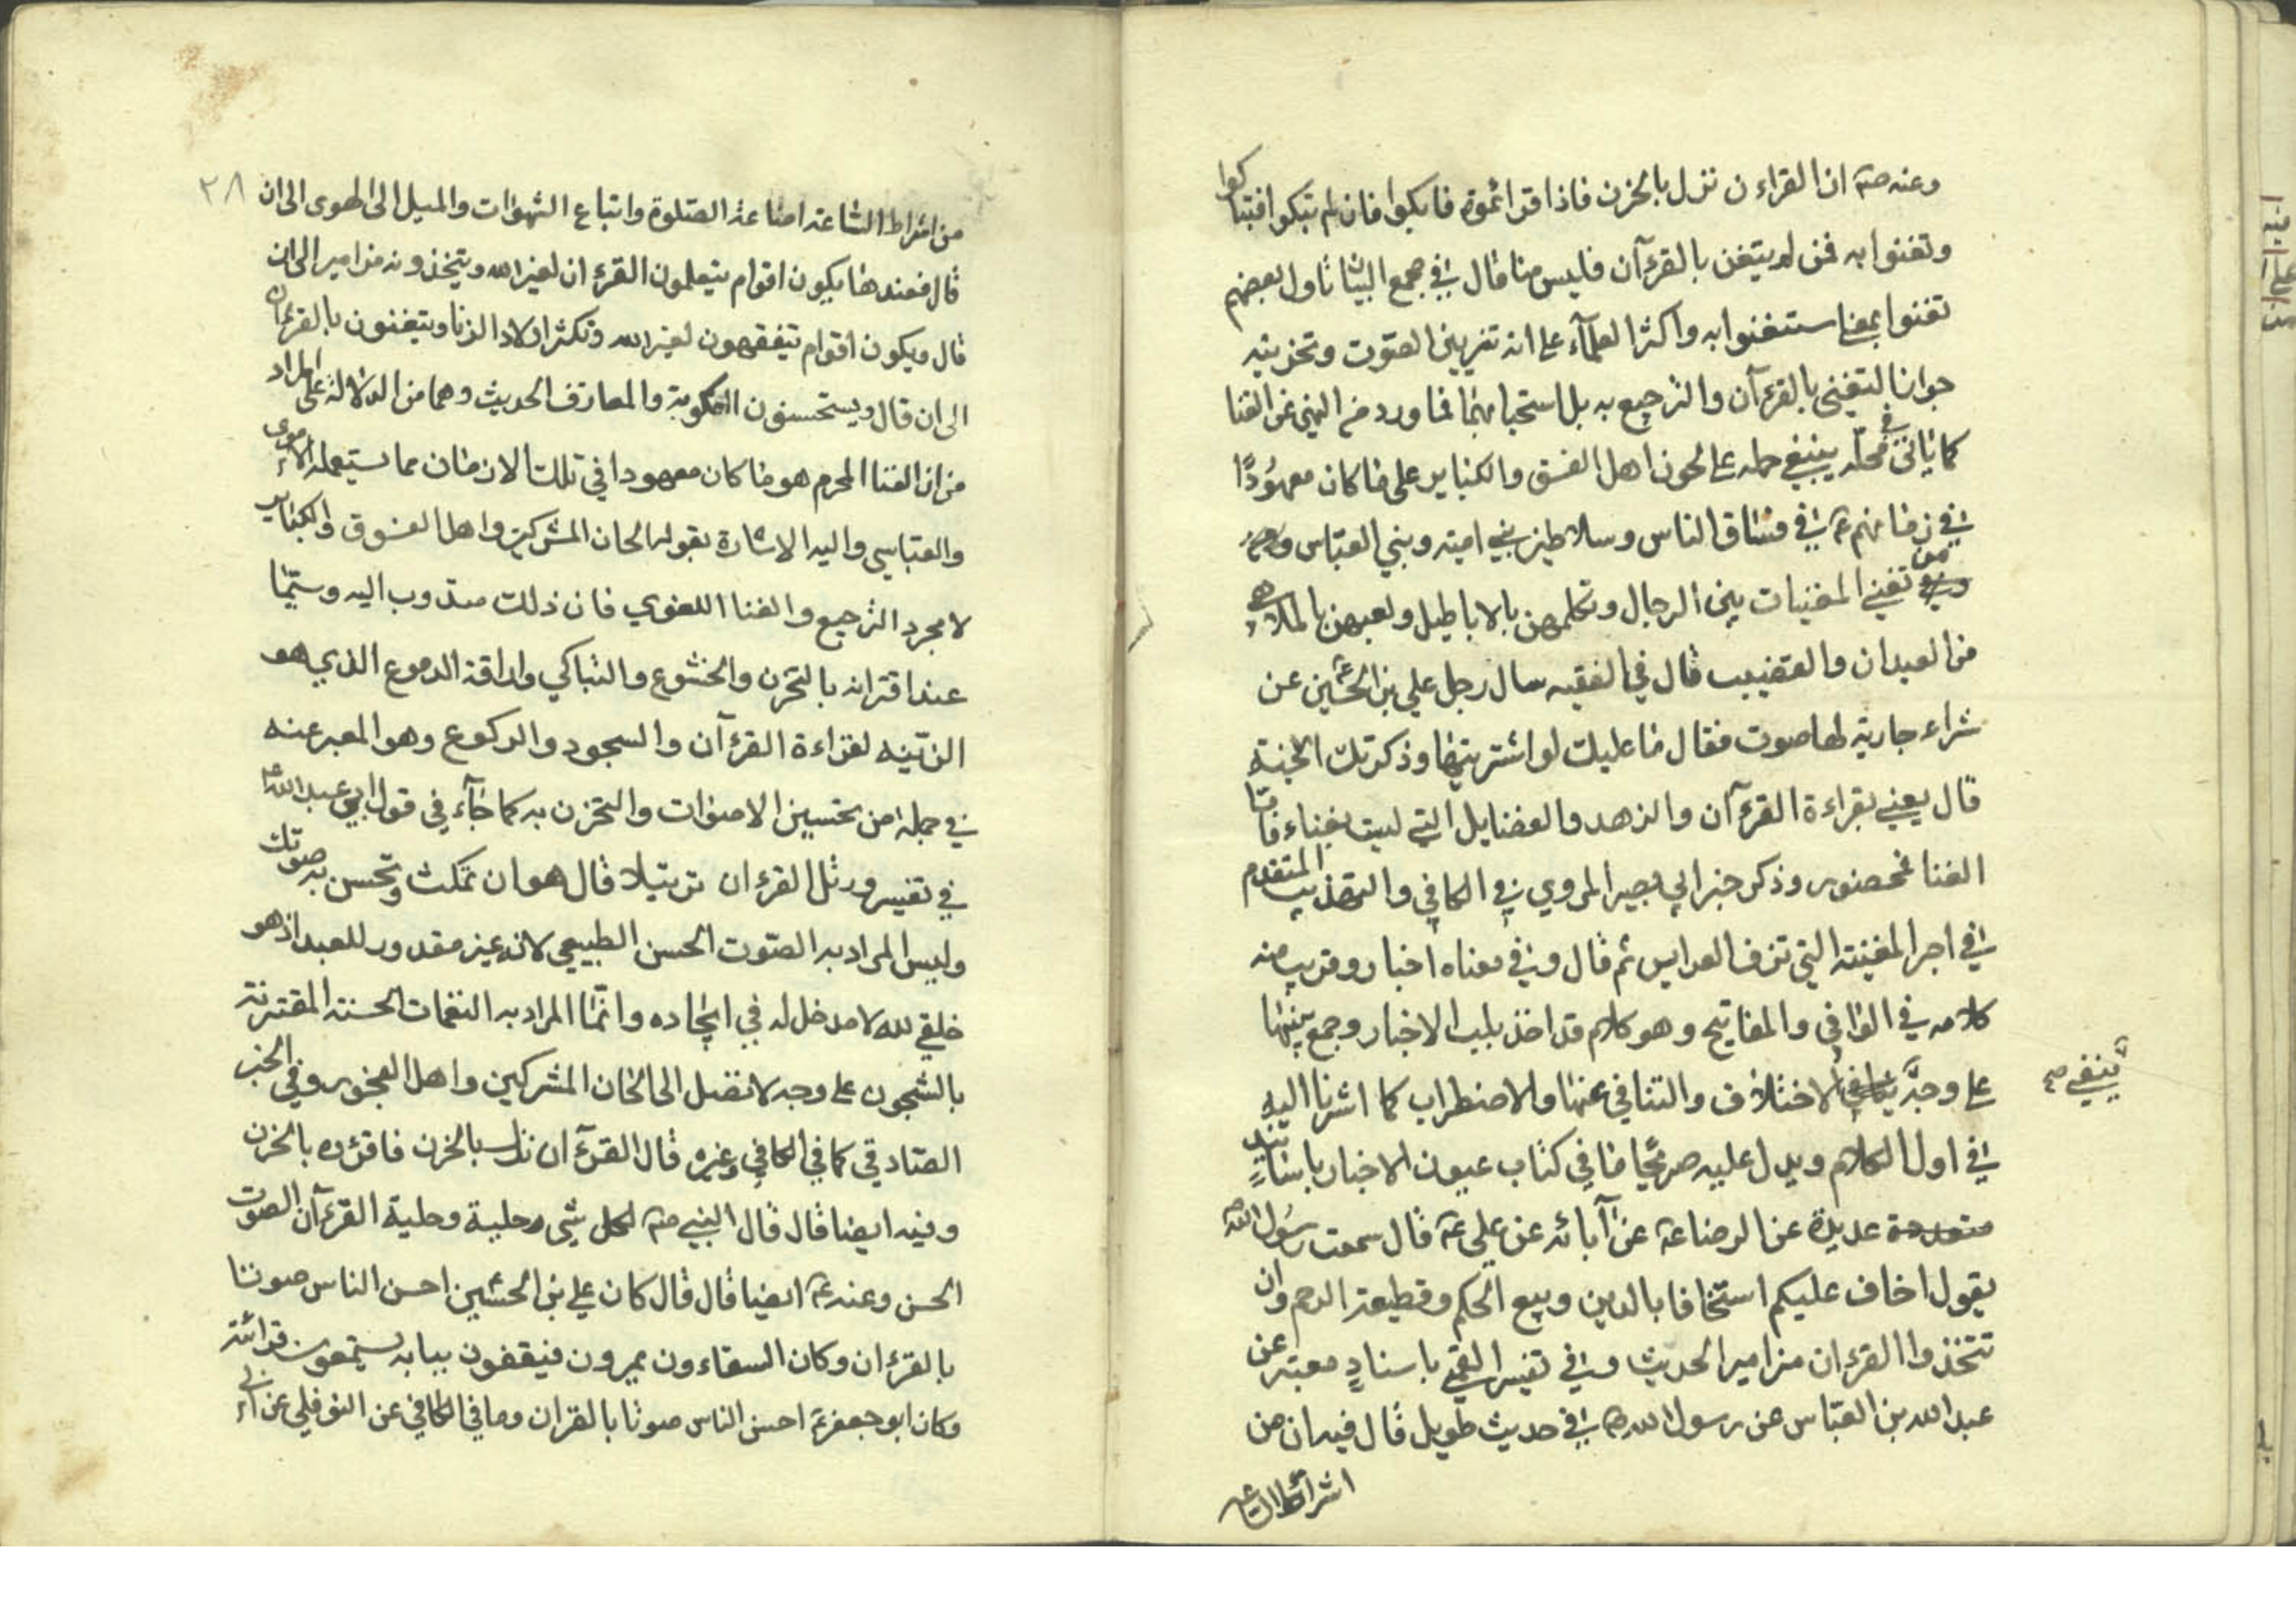 وعنه صم ان القراءن نزل بالحزن فاذا قرائموه فابكوا فان لم تبكوا فتباكوا
وتغنوا به فمن لم يتغن بالقرءآن فليس منا قال في مجمع البيان تاول بعضهم
تغنوا بمعنى استغنوا به واكثر العلمآء على انه تزيين الصوت وتحزينه
جواز التغني بالقرءآن والترجيع به بل استحبابهما فما ورد من النهي عن الغنا
كما ياتي في محله ينبغي حمله على لحون اهل الفسق والكباير على ما كان معهودًا
في زمانهم ع في فساق الناس وسلاطين بني امية وبني العباس
من تغني المغنيات بين الرجال وتكلمهن بالاباطيل ولعبهن بالملاهي
من العيدان والقضيب قال في الفقيه سال رجل علي بن الحسين عن
شراء جارية لها صوت فقال ما عليك لو اشتريتها وذكرتك الجنة
قال يعني بقراءة القرءآن والزهد والفضايل التي ليست بغناء فاما
الغنا فمحضور وذكر خبر ابي بصير المروي في الكافي والتهذيب المتقدم
في اجر المغنية التي تزف العرايس ثم قال وفي معناه اخبار وقريب منه
كلامه في الوافي والمفاتيح وهو كلام قد اخذ بلب الاخبار وجمع بينها
على وجه ينفي الاختلاف والتنافي عنها والاضطراب كما اشرنا اليه
ينفي صح
في اول الكلام ويدل عليه صريحًا ما في كتاب عيون الاخبار باسانيد
عديدة عن الرضا ع عن آبائه عن علي ع قال سمعت رسول الله
يقول اخاف عليكم استخفافا بالدين وبيع الحكم وقطيعة الرحم وان
تتخذوا القرءان مزامير الحديث وفي تفسير القمي باسنادٍ معتبر عن
عبد الله بن العباس عن رسول الله ص في حديث طويل قال فيه ان من
اشراط الساعة
٢٨
من اشراط الساعة اضاعة الصلوة واتباع الشهوات والميل الى الهوى الى ان
قال فعندها يكون اقوام يتعلمون القرءان لغير الله ويتخذونه مزامير الى ان
قال ويكون اقوام يتفقهون لغير الله وتكثر اولاد الزنا ويتغنون بالقرءان
الى ان قال ويستحسنون الكوبة والمعازف الحديث وهما من الدلالة على المراد
من ان الغنا المحرم هو ما كان معهودا في تلك الازمان مما يستعمله الاموي
والعباسي واليه الاشارة بقوله الحان المشركين واهل الفسوق والكباير
لا مجرد الترجيع والغنا اللغوي فان ذلك مندوب اليه وسيّما
عند اقترانه بالتحزن والخشوع والتباكي واراقة الدموع الذي هو
الزينه لقراءة القرءآن والسجود والركوع وهو المعبر عنه
في جملة من تحسين الاصوات والتحزن به كما جآء في قول ابي عبد الله ع
في تفسير ورتل القرءان ترتيلا قال هو ان تمكث وتحسن به صوتك
وليس المراد به الصوت الحسن الطبيعي لانه غير مقدور للعبد اذ هو
خلقي لله لا مدخل له في ايجاده وانما المراد به النغمات الحسنة المقترنة
بالشجون على وجه لا تصل الى الحان المشركين واهل الفجور وفي الخبر
الصادقي كما في الكافي وغيره قال القرءآن نزل بالحزن فاقرؤه بالحزن
وفيه ايضا قال قال النبي صم لكل شي حلية وحلية القرءآن الصوت
الحسن وعنه ع ايضا قال قال كان علي بن الحسين احسن الناس صوتا
بالقرءان وكان السقاءون يمرون فيقفون ببابه يستمعون قرائته
وكان ابو جعفر ع احسن الناس صوتا بالقران وما في الكافي عن النوفلي عن ابي